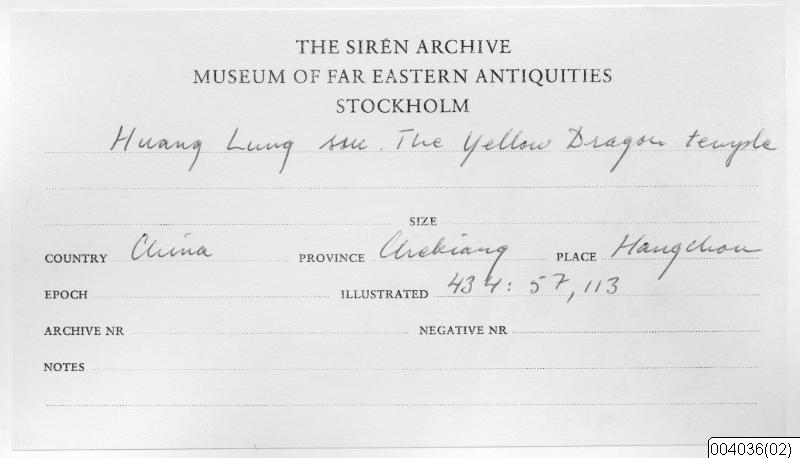 THE SIRÉN ARCHIVE
MUSEUM OF FAR EASTERN ANTIQUITIES
STOCKHOLM
Huang Lung ssu. The Yellow Dragon temple
SIZE
COUNTRY China PROVINCE Chekiang PLACE Hangchou
EPOCH ILLUSTRATED 434: 57, 113
ARCHIVE NR NEGATIVE NR
NOTES
004036(02)